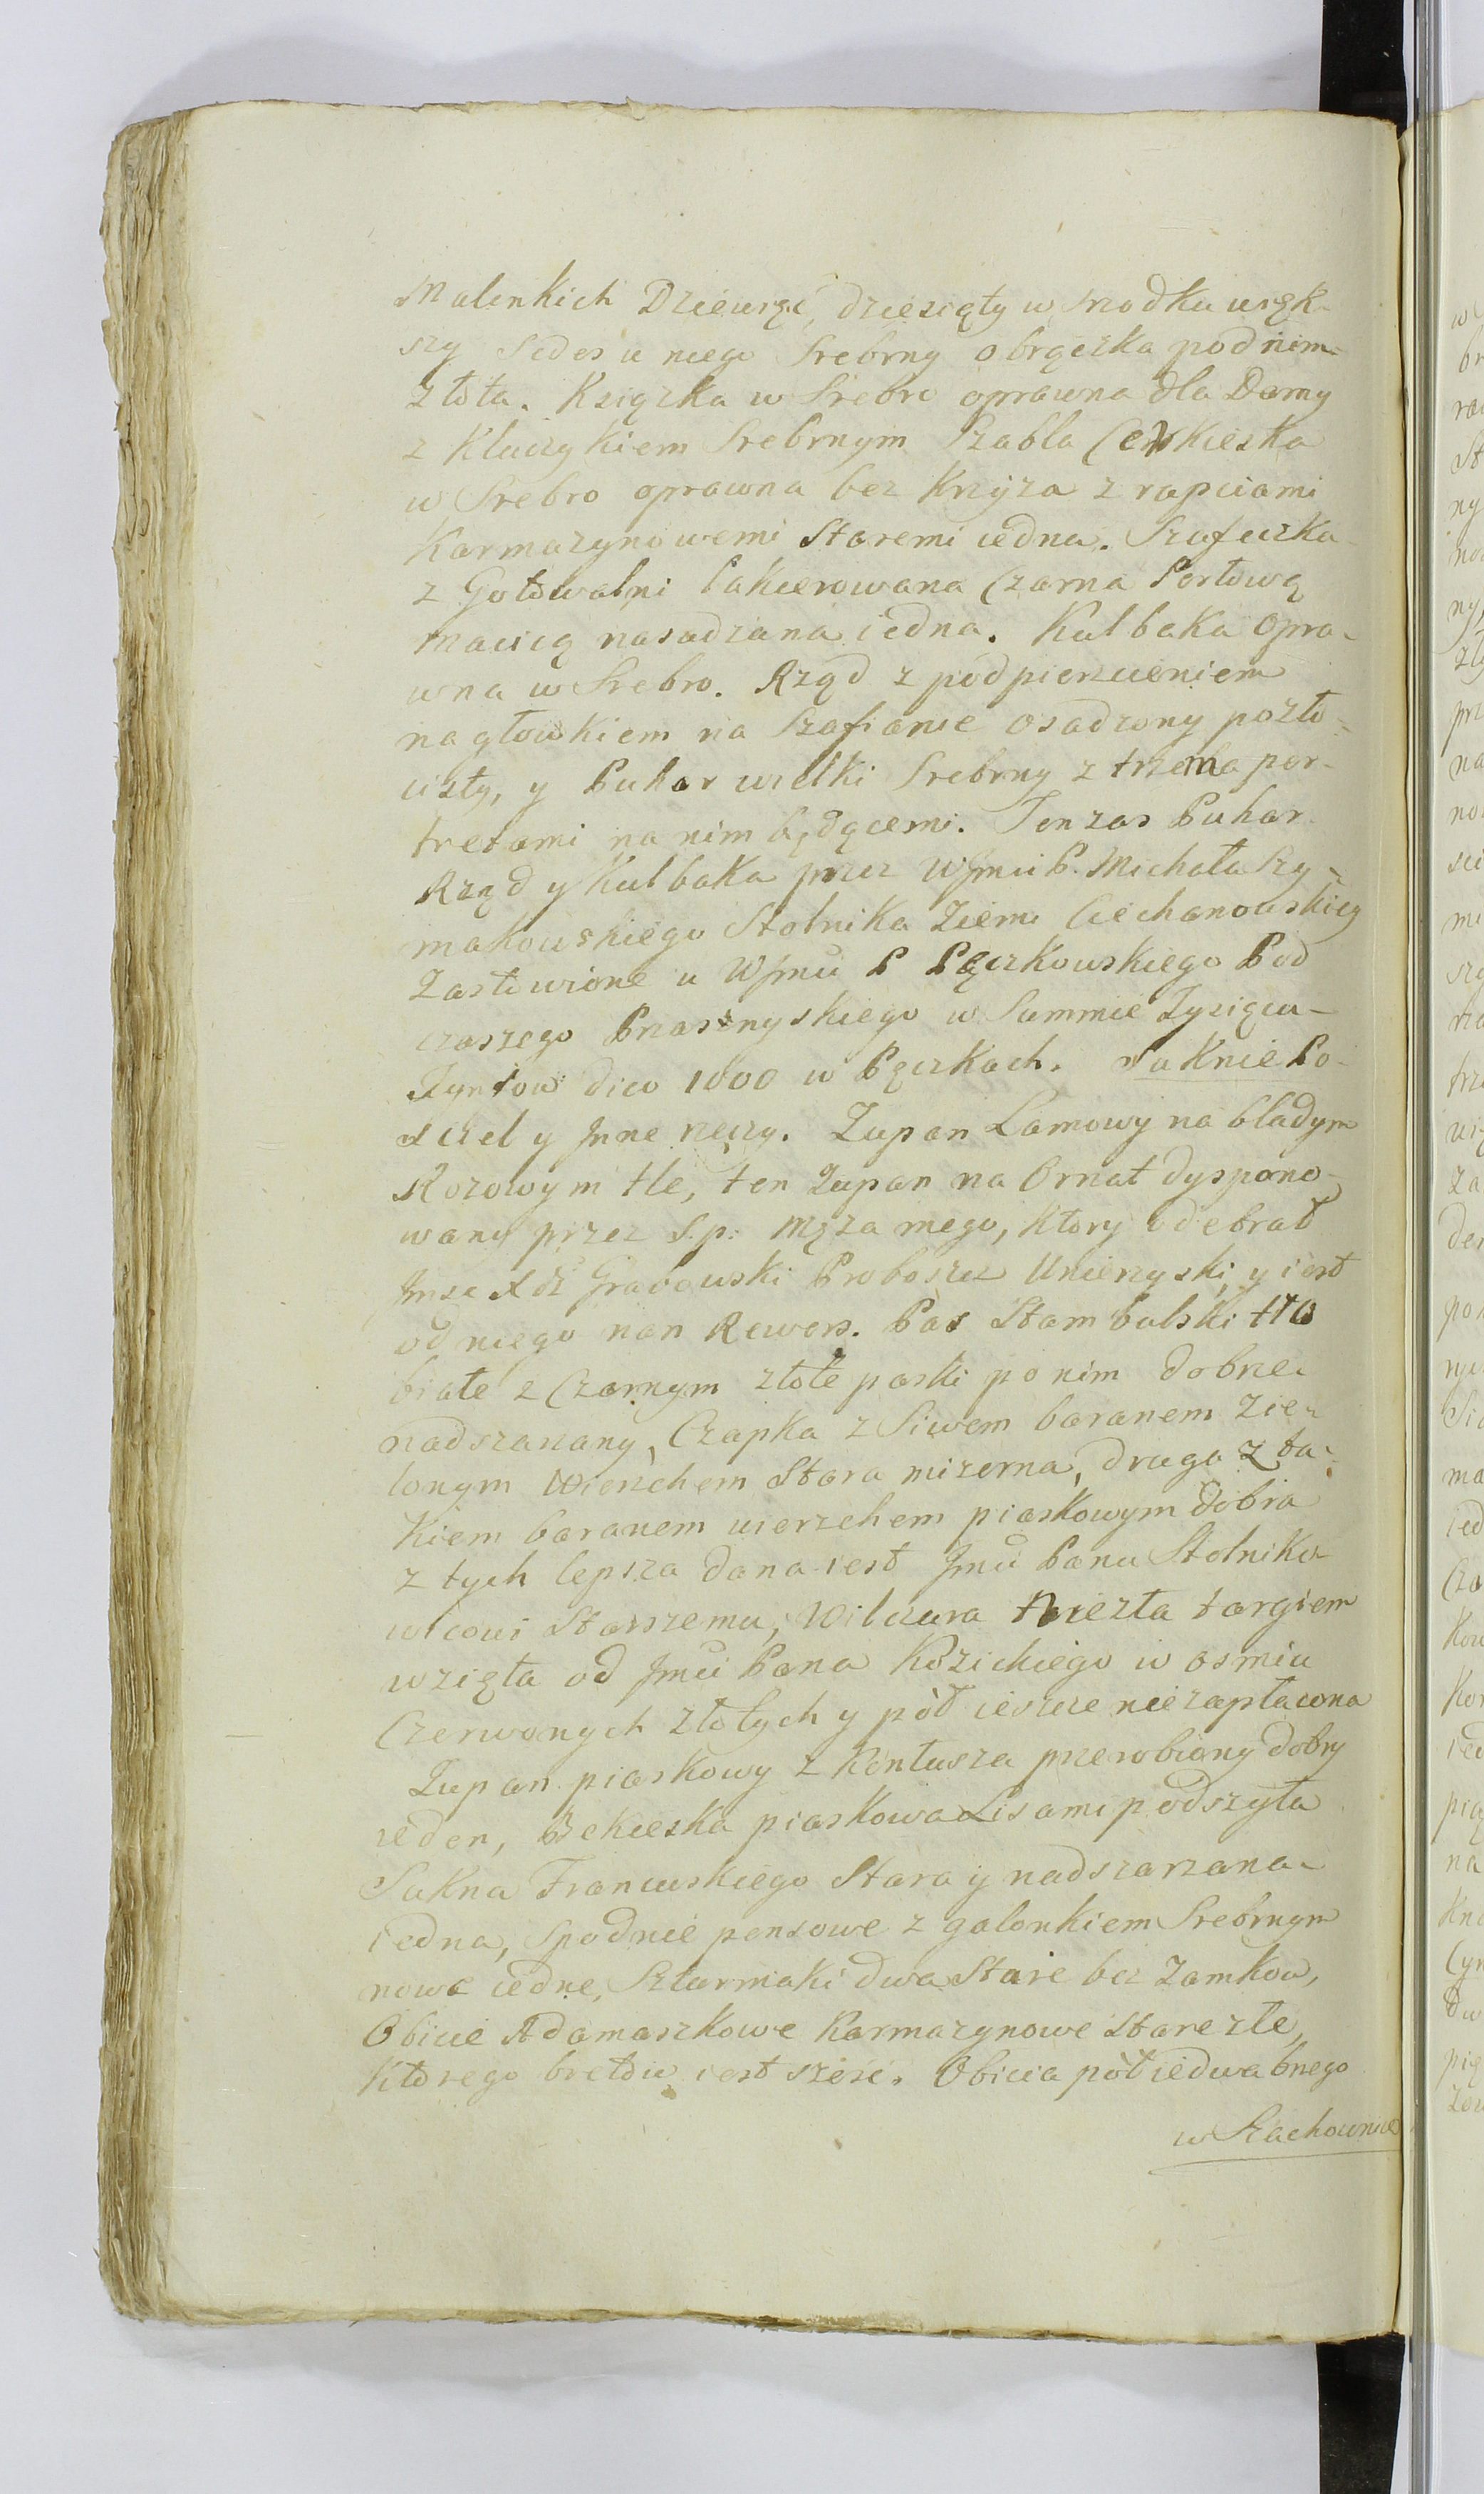 Malenkich Dziewięć, dziesiąty w srodku więk-
szy sedes u niego Srebrny obrączka pod nim
Złota. Książka w Srebro oprawna dla Damy
z Kluczykiem Srebrnym Szabla
w Srebro oprawna bez Krzyża z rapciami
Karmazynowemi Staremi iedna. Szafeczka
z Gotowalni Lakierowana Czarna Perłową
macicą nasadzana iedna. Kulbaka Opra-
wna w Srebro. Rząd z podpiersieniem
nagłowkiem na Szafianie osadzony pozło-
cisty, y Puhar wielki Srebrny z trzema por-
tretami na nim będącemi. Ten zas Puhar
Rząd y Kulbaka przez WJmci P. Michała Szy-
makowskiego Stolnika Ziemi Ciechanowskiey
Zastawione u WJmci P Pączkowskiego Pod
czaszego Prasznyskiego w Summie Tysiąca
Tynfow dico 1000 w Pączkach. Suknie Po-
sciel y Jnne rzeczy. Zupan Lamowy na bladym
Rozowym tle, ten Zupan na Ornat dyspono-
wany przez S.p. Męża mego, ktory odebrał
Jmsc Xdz Grabowski Proboszcz Unierzyski, y iest
od niego nan Rewers. Pas Stambulski tło
białe z Czarnym złote paski po nim dobrze
nadszarzany, Czapka z Siwem baranem Zie-
lonym Wierzchem Stara mizerna, druga z ta-
kiem baranem wierzchem piaskowym dobra
z tych lepsza dana iest Jmci Panu Stolniko-
wicowi Starszemu, Wilczura niezła targiem
wzięta od Jmci Pana Kozickiego w osmiu
Czerwonych złotych y pół ieszcze niezapłacona
Zupan piaskowy z Kontusza przerobiony dobry
ieden, Bekieska piaskowa Lisami podszyta
Sukna Francuskiego Stara y nadszarzana
iedna, Spodnie pensowe z galonkiem Srebrnym
nowe iedne, Szturmaki dwa Stare bez Zamkow,
Obicie Adamaszkowe Karmazynowe Stare złe,
Ktorego bretow iest szesc. Obicia pół iedwabnego
w Szachownice